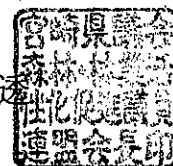 透
宮崎県議会
森林・林業活
性化促進議員
連盟会長印